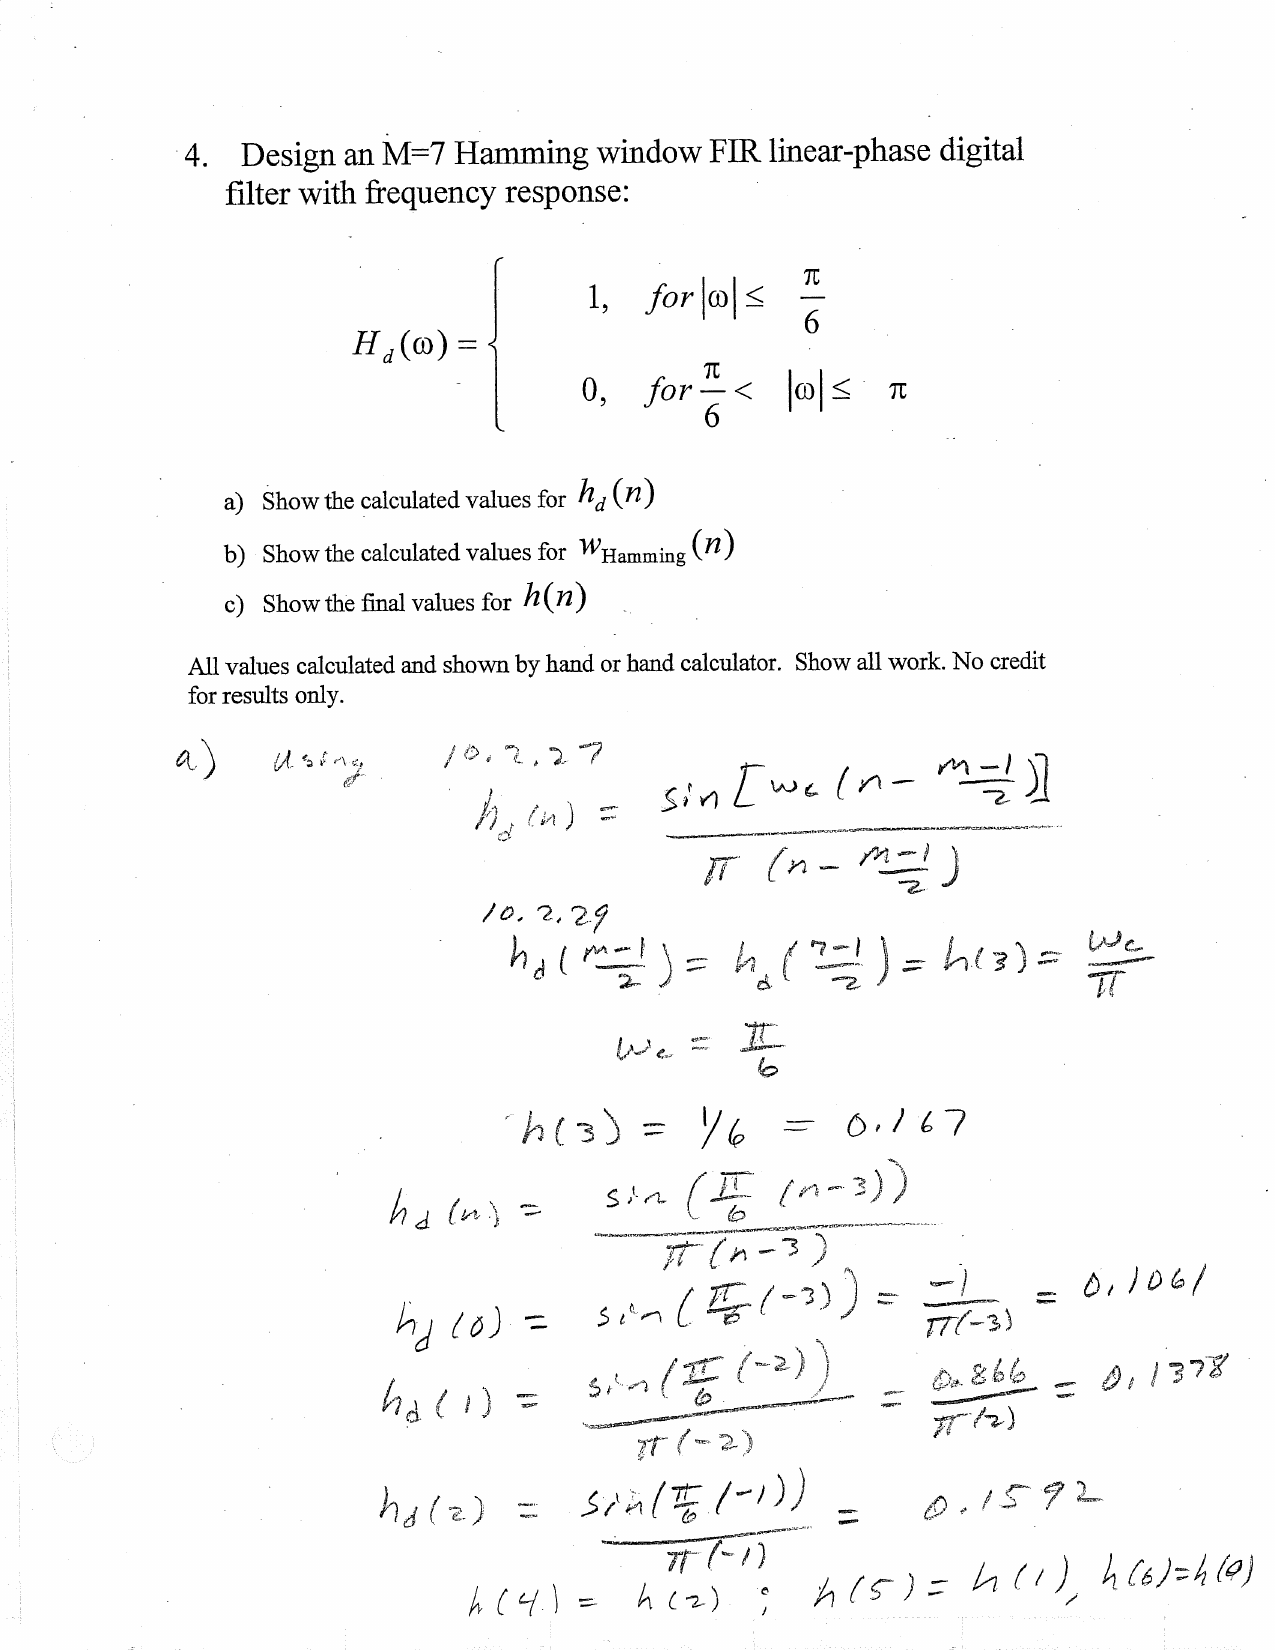 4. Design an M=7 Hamming window FIR linear-phase digital
filter with frequency response:
H_d(ω) = { 1, for |ω| ≤ π/6
0, for π/6 < |ω| ≤ π
a) Show the calculated values for h_d(n)
b) Show the calculated values for w_Hamming(n)
c) Show the final values for h(n)
All values calculated and shown by hand or hand calculator. Show all work. No credit
for results only.
a) using 10.2.27
h_d(n) = sin[ωc(n - (M-1)/2)] / π(n - (M-1)/2)
10.2.29
h_d((M-1)/2) = h_d((7-1)/2) = h(3) = ωc/π
ωc = π/6
h(3) = 1/6 = 0.167
h_d(n) = sin(π/6 (n-3)) / π(n-3)
h_d(0) = sin(π/6(-3)) = -1/π(-3) = 0.1061
h_d(1) = sin(π/6(-2)) / π(-2) = 0.866/π(2) = 0.1378
h_d(2) = sin(π/6(-1)) / π(-1) = 0.1592
h(4) = h(2) ; h(5) = h(1), h(6)=h(0)